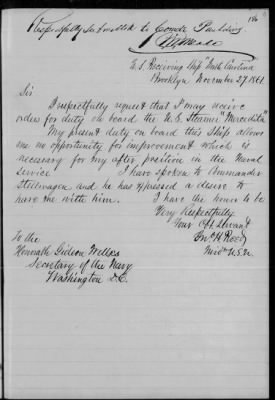 186
Respectfully submitted to Comdt Paulding
U.S. Receiving Ship North Carolina
Brooklyn November 27, 1861.
Sir
I respectfully request that I may receive
orders for duty on board the U.S. Steamer "Mercedita"
My present duty on board this Ship allows
me no opportunity for improvement which is
necessary for my after position in the Naval
Service I have spoken to Commander
Stellwagen and he has expressed a desire to
have me with him. I have the honor to be
Very Respectfully
Your Obt Servant
Jno. H. Reed
Mid. U.S.N.
To the
Honorable Gideon Welles
Secretary of the Navy
Washington D.C.